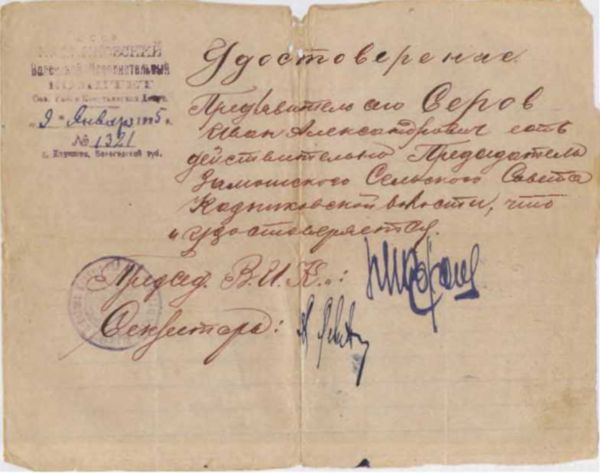 КАДНИКОВСКИЙ
Волостной Исполнительный
КОМИТЕТ
„9" Января 1925 г.
№ 1321
г. Кадников, Вологодской губ.
Удостоверение.
Предъявитель сего Серов
Иван Александрович есть
действительно Председатель
Замошского Сельского Совета
Кадниковской волости, что
и удостоверяется.
Председ. В.И.К.:
Секретарь: